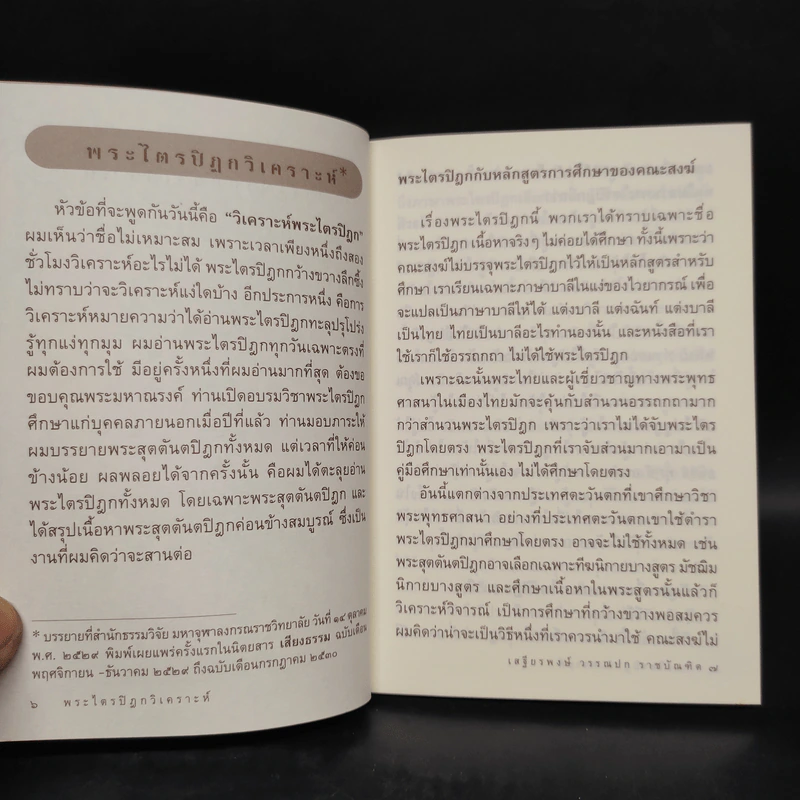 พระไตรปิฎกวิเคราะห์*
หัวข้อที่จะพูดกันวันนี้คือ "วิเคราะห์พระไตรปิฎก"
ผมเห็นว่าชื่อไม่เหมาะสม เพราะเวลาเพียงหนึ่งถึงสอง
ชั่วโมงวิเคราะห์อะไรไม่ได้ พระไตรปิฎกกว้างขวางลึกซึ้ง
ไม่ทราบว่าจะวิเคราะห์แง่ใดบ้าง อีกประการหนึ่ง คือการ
วิเคราะห์หมายความว่าได้อ่านพระไตรปิฎกทะลุปรุโปร่ง
รู้ทุกแง่ทุกมุม ผมอ่านพระไตรปิฎกทุกวันเฉพาะตรงที่
ผมต้องการใช้ มีอยู่ครั้งหนึ่งที่ผมอ่านมากที่สุด ต้องขอ
ขอบคุณพระมหาณรงค์ ท่านเปิดอบรมวิชาพระไตรปิฎก
ศึกษาแก่บุคคลภายนอกเมื่อปีที่แล้ว ท่านมอบภาระให้
ผมบรรยายพระสุตตันตปิฎกทั้งหมด แต่เวลาที่ให้ค่อน
ข้างน้อย ผลพลอยได้จากครั้งนั้น คือผมได้ตะลุยอ่าน
พระไตรปิฎกทั้งหมด โดยเฉพาะพระสุตตันตปิฎก และ
ได้สรุปเนื้อหาพระสุตตันตปิฎกค่อนข้างสมบูรณ์ ซึ่งเป็น
งานที่ผมคิดว่าจะสานต่อ
* บรรยายที่สำนักธรรมวิจัย มหาจุฬาลงกรณราชวิทยาลัย วันที่ ๑๔ ตุลาคม
พ.ศ. ๒๕๒๙ พิมพ์เผยแพร่ครั้งแรกในนิตยสาร เสียงธรรม ฉบับเดือน
พฤศจิกายน -ธันวาคม ๒๕๒๙ ถึงฉบับเดือนกรกฎาคม ๒๕๓๐
๖ พระไตรปิฎกวิเคราะห์
พระไตรปิฎกกับหลักสูตรการศึกษาของคณะสงฆ์
เรื่องพระไตรปิฎกนี้ พวกเราได้ทราบเฉพาะชื่อ
พระไตรปิฎก เนื้อหาจริงๆ ไม่ค่อยได้ศึกษา ทั้งนี้เพราะว่า
คณะสงฆ์ไม่บรรจุพระไตรปิฎกไว้ให้เป็นหลักสูตรสำหรับ
ศึกษา เราเรียนเฉพาะภาษาบาลีในแง่ของไวยากรณ์ เพื่อ
จะแปลเป็นภาษาบาลีให้ได้ แต่งบาลี แต่งฉันท์ แต่งบาลี
เป็นไทย ไทยเป็นบาลีอะไรทำนองนั้น และหนังสือที่เรา
ใช้เราก็ใช้อรรถกถา ไม่ได้ใช้พระไตรปิฎก
เพราะฉะนั้นพระไทยและผู้เชี่ยวชาญทางพระพุทธ
ศาสนาในเมืองไทยมักจะคุ้นกับสำนวนอรรถกถามาก
กว่าสำนวนพระไตรปิฎก เพราะว่าเราไม่ได้จับพระไตร
ปิฎกโดยตรง พระไตรปิฎกที่เราจับส่วนมากเอามาเป็น
คู่มือศึกษาเท่านั้นเอง ไม่ได้ศึกษาโดยตรง
อันนี้แตกต่างจากประเทศตะวันตกที่เขาศึกษาวิชา
พระพุทธศาสนา อย่างที่ประเทศตะวันตกเขาใช้ตำรา
พระไตรปิฎกมาศึกษาโดยตรง อาจจะไม่ใช้ทั้งหมด เช่น
พระสุตตันตปิฎกอาจเลือกเฉพาะทีฆนิกายบางสูตร มัชฌิม
นิกายบางสูตร และศึกษาเนื้อหาในพระสูตรนั้นแล้วก็
วิเคราะห์วิจารณ์ เป็นการศึกษาที่กว้างขวางพอสมควร
ผมคิดว่าน่าจะเป็นวิธีหนึ่งที่เราควรนำมาใช้ คณะสงฆ์ไม่
เสฐียรพงษ์ วรรณปก ราชบัณฑิต ๗